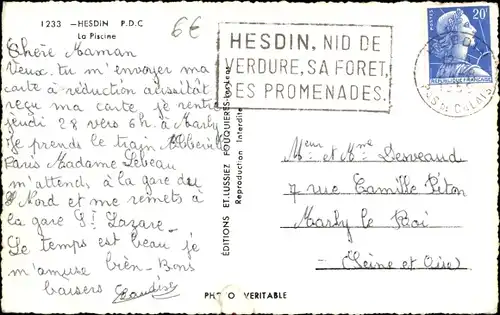 1233 - HESDIN P.D.C
La Piscine
6€
Chère Maman
Veux tu m'envoyer ma
carte à réduction aussitôt
reçu ma carte je rentre
jeudi 28 vers 6h. à Marly
Je prends le train Abbeville
Paris Madame Lebeau
m'attends à la gare du
Nord et me remets à
la gare St Lazare.
Le temps est beau je
m'amuse bien. Bons
baisers
EDITIONS ET. LUSSIEZ FOUQUIERES-les-Lens
Reproduction Interdite
PHOTO VERITABLE
HESDIN, NID DE
VERDURE, SA FORET,
SES PROMENADES.
POSTES 20F
REPUBLIQUE FRANÇAISE
PAS DE CALAIS
Meur et Mme Desveaud
7 rue Camille Piton
Marly le Roi
(Seine et Oise)